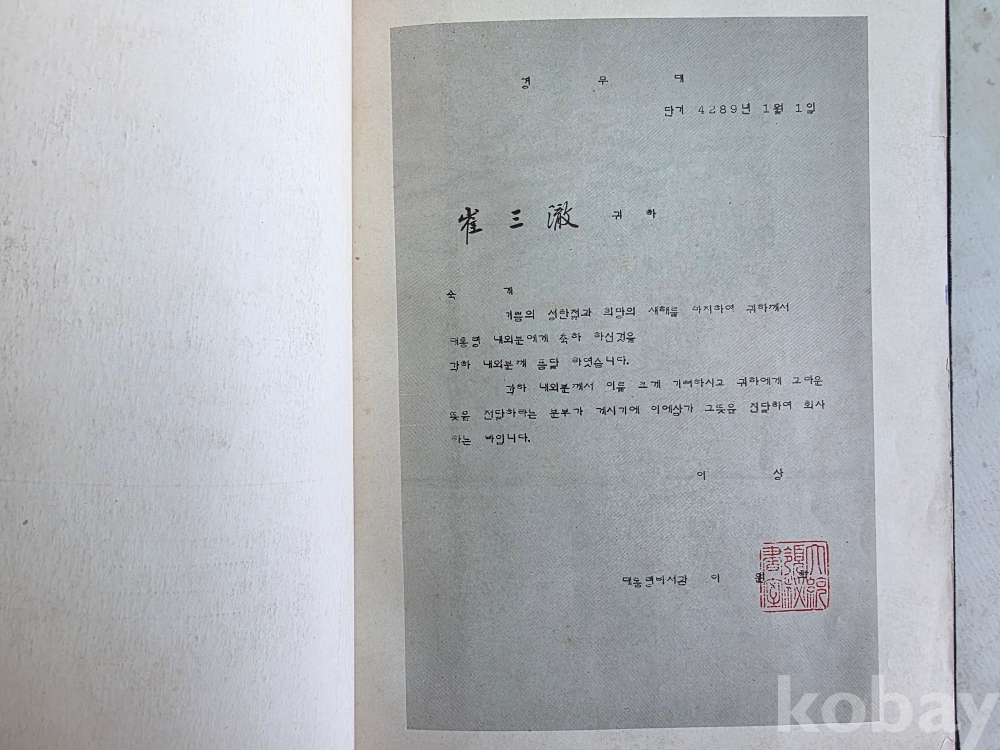 경 무 대
단기 4289년 1월 1일
崔三澈 귀하
숙 개
기쁨의 성탄절과 희망의 새해를 마지하여 귀하께서
대통령 내외분에게 축하 하신것을
각하 내외분께 품달 하엿습니다.
각하 내외분께서 이를 크게 기뻐하시고 귀하에게 고마운
뜻을 전달하라는 분부가 게시기에 이에삼가 그뜻을 전달하여 회사
하는 바입니다.
이 상
대통령비서관 이 원 희
大統領秘書室
kobay